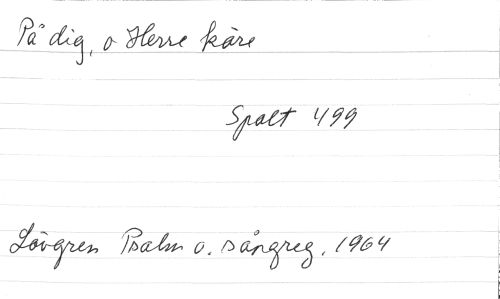 På dig, o Herre käre
Spalt 499
Lövgren Psalm o. sångreg. 1964